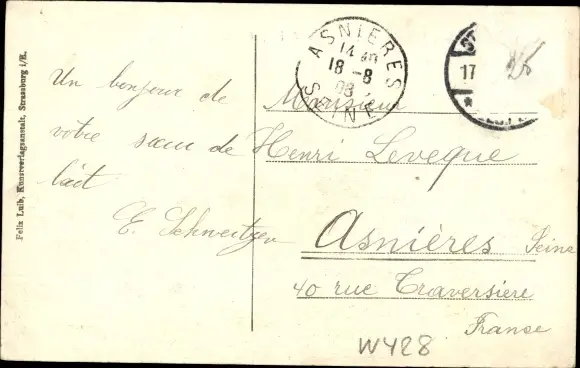 Felix Luib, Kunstverlagsanstalt, Strassburg i/E.
Un bonjour de
votre sœur de
lait
E. Schweitzer
ASNIERES
14
18 -8
08
SEINE
17
25
Monsieur
Henri Leveque
Asnières Seine
40 rue Traversiere
France
W428